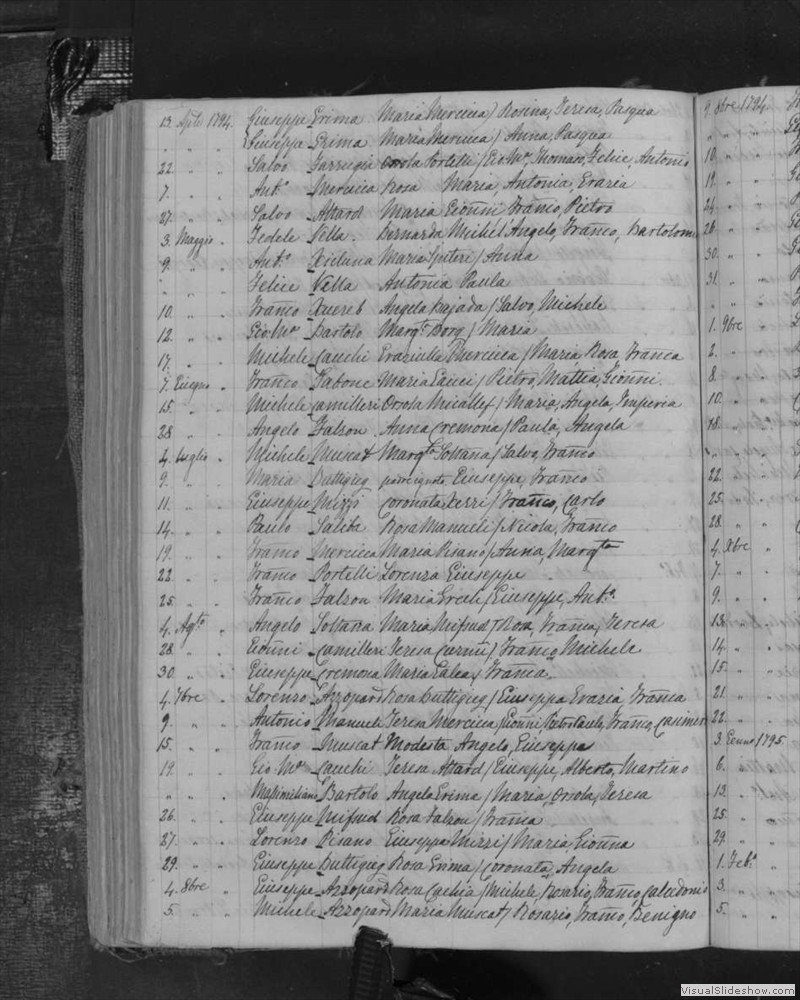 13. Aple 1794. Giuseppe Grima Maria Mercieca / Rosina, Teresa, Pasqua
" " " Giuseppe Grima Maria Mercieca / Anna, Pasqua
22. " " Salvo Farrugia Orsola Portelli / Gio Ma, Thomaso, Felice, Antonio
7. " " Anto Mercieca Rosa Maria, Antonia, Grazia
27. " " Salvo Attard Maria Gioñni Franco, Pietro
3. Maggio " Fedele Vella Bernarda Michel'Angelo, Franco, Bartolomeo
9. " " Anto Xicluna Maria Spiteri / Anna
" " " Felice Vella Antonia Paula
10. " " Franco Xuereb Angela Rajada / Salvo, Michele
12. " " Gio: Ma Bartolo Margta Borg / Maria
17. " " Michele Cauchi Graziulla Mercieca / Maria Rosa, Franca
7. Giugno " Franco Tabone Maria Gauci / Pietro, Mattia, Gioñni
15. " " Michele Camilleri Orsola Micallef / Maria, Angela, Imperia
28 " " Angelo Falzon Anna Cremona / Paula, Angela
4. Luglio " Michele Muscat Margta Soltana / Salvo, Franco
9. " " Maria Buttigieg Giuseppe, Franco
11. " " Giuseppe Mizzi Coronata Xerri / Franco, Carlo
14. " " Paulo Saliba Rosa Manueli / Nicola, Franco
19. " " Franco Mercieca Maria Pisano / Anna, Margta
22. " " Franco Portelli Lorenza Giuseppe
25. " " Franco Falzon Maria Grech / Giuseppe, Anta
4. Agto " Angelo Soltana Maria Mifsud / Rosa, Franca, Teresa
28. " " Gioñni Camilleri Teresa Curmi / Franco, Michele
30. " " Giuseppe Cremona Maria Galea / Franca
4. 7bre " Lorenzo Azzopard Rosa Buttigieg / Giuseppa Grazia, Franca
9. " " Antonio Manueli Teresa Mercieca / Gioñni Pietro Paulo, Franco, Casimero
15. " " Franco Muscat Modesta Angelo, Giuseppe
19. " " Gio: Ma Cauchi Teresa Attard / Giuseppe, Alberto, Martino
" " " Maximiliano Bartolo Angela Grima / Maria, Orsola, Teresa
26. " " Giuseppe Mifsud Rosa Falzon / Franca
27. " " Lorenzo Pisano Giuseppa Mizzi / Maria, Gioñna
29. " " Giuseppe Buttigieg Rosa Grima / Coronata, Angela
4. 8bre " Giuseppe Azzopard Rosa Cachia / Michele, Rosario, Franco, Calcedonio
5. " " Michele Azzopard Maria Muscat / Rosario, Franco, Benigno
9. 8bre 1794.
" " "
10. " "
19. " "
24. " "
26. " "
30. " "
31. " "
" " "
1. 9bre "
2. " "
8. " "
10. " "
18. " "
" " "
22. " "
25. " "
28. " "
4. Xbre "
7. " "
9. " "
13. " "
14. " "
15. " "
21. " "
22. " "
3. Genno 1795.
6. " "
13. " "
25. " "
29. " "
1. Feb. "
3. " "
5. " "
VisualSlideshow.com